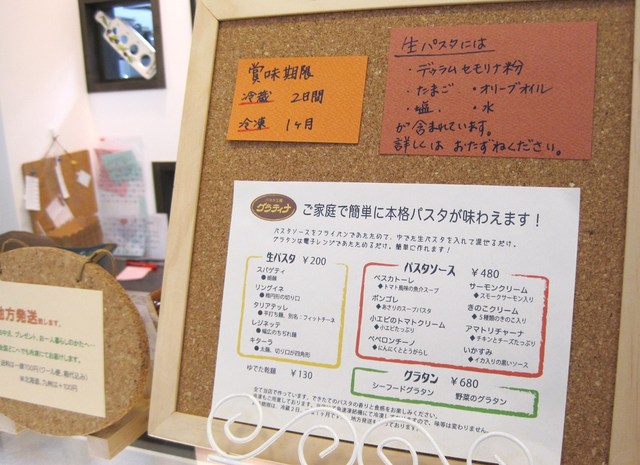 賞味期限
冷蔵 2日間
冷凍 1ヶ月
生パスタには
・デュラム セモリナ粉
・たまご ・オリーブオイル
・塩 ・水
が含まれています。
詳しくは おたずねください。
グラティナ
ご家庭で簡単に本格パスタが味わえます！
パスタソースをフライパンであたためて、ゆでた生パスタを入れて混ぜるだけ。
グラタンは電子レンジであたためるだけ。簡単に作れます！
生パスタ ￥200
スパゲティ
リングイネ
◆楕円形の切り口
タリアテッレ
◆平打ち麺、別名：フィットチーネ
レジネッテ
◆幅広のちぢれ麺
キターラ
◆太麺、切り口が四角形
ゆでた乾麺 ￥130
パスタソース ￥480
ペスカトーレ
◆トマト風味の魚介スープ
ボンゴレ
◆あさりのスープパスタ
小エビのトマトクリーム
◆小エビたっぷり
ペペロンチーノ
◆にんにくととうがらし
サーモンクリーム
◆スモークサーモン入り
きのこクリーム
◆5種類のきのこ入り
アマトリチャーナ
◆チキンとチーズたっぷり
いかすみ
◆イカ入りの黒いソース
グラタン ￥680
シーフードグラタン 野菜のグラタン
全て当店で作っています。できたてのパスタの香りと食感をお楽しみください。
地方発送